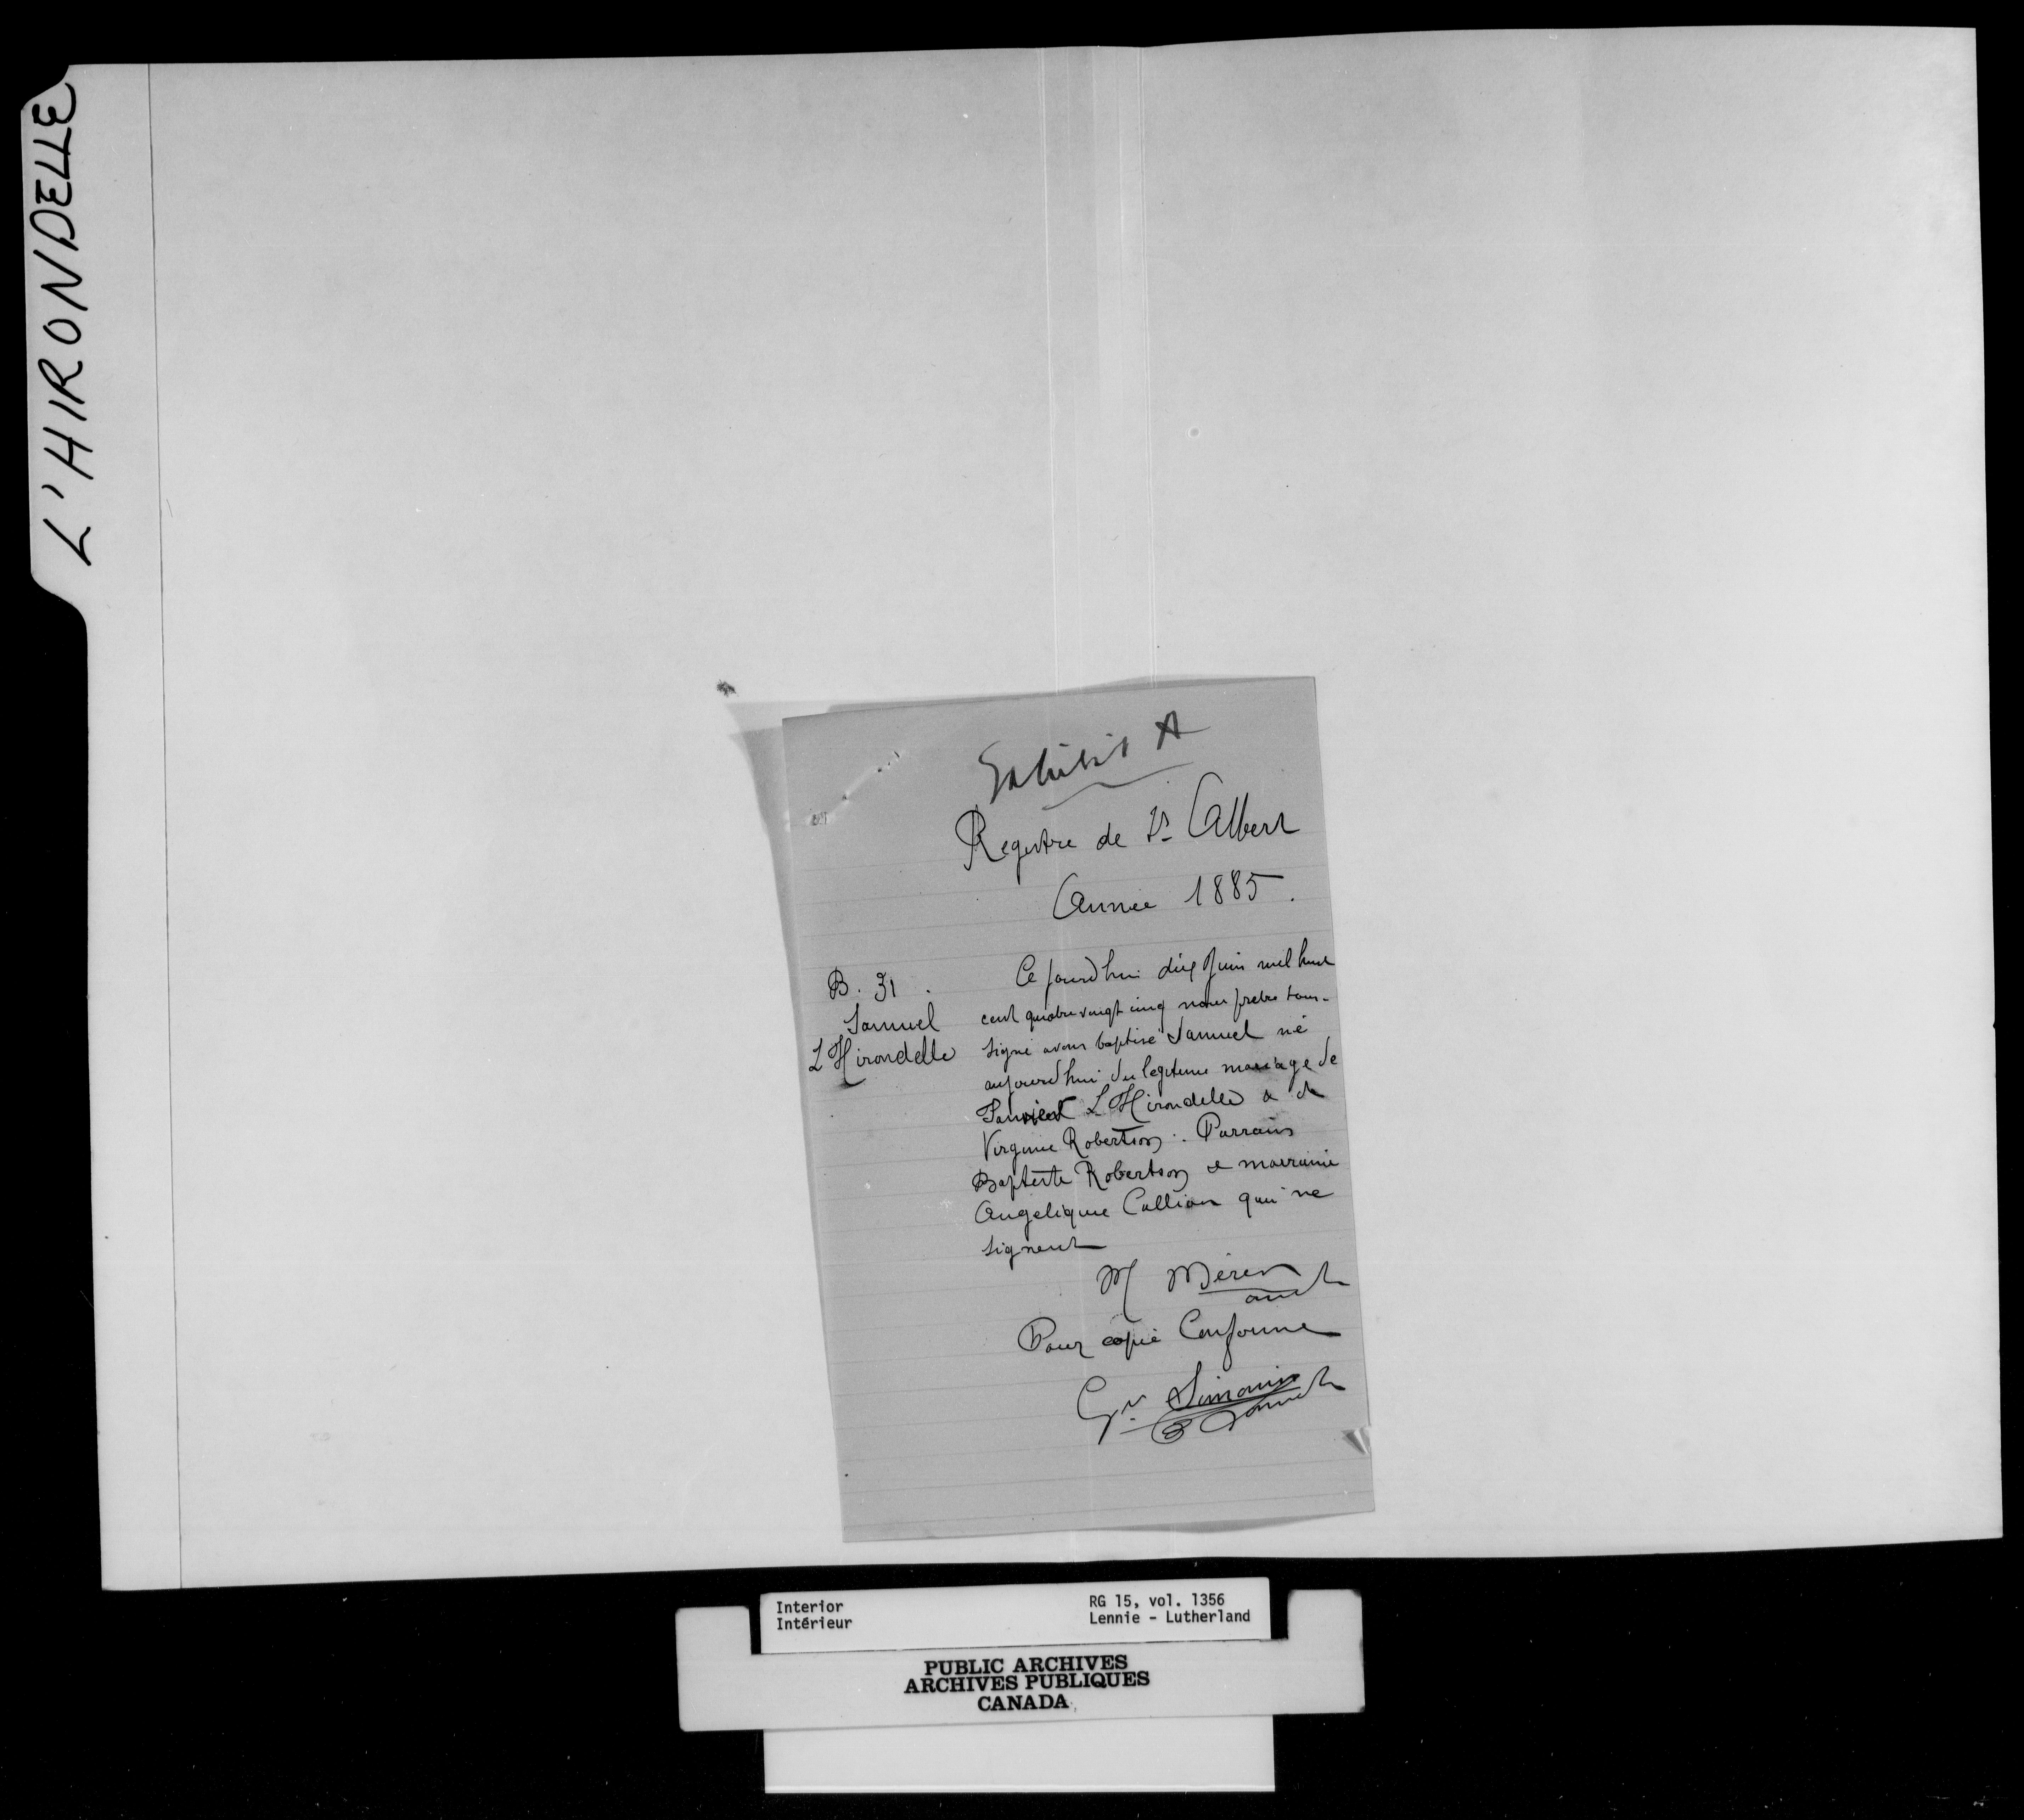 L'HIRONDELLE
Exhibit A
Registre de St Albert
Année 1885.
B. 31.
Samuel
L'Hirondelle
Ce jourd'hui dix Juin mil huit
cent quatre vingt cinq nous prêtre sous-
signé avons baptisé Samuel né
aujourd'hui du legitime mariage de
L'Hirondelle & de
Virginie Robertson. Parrain
Baptiste Robertson & marraine
Angelique Callion qui ne
signent
M Mérer
omi
Pour copie Conforme
Gn. Simonin
omi
Interior
Intérieur
RG 15, vol. 1356
Lennie - Lutherland
PUBLIC ARCHIVES
ARCHIVES PUBLIQUES
CANADA